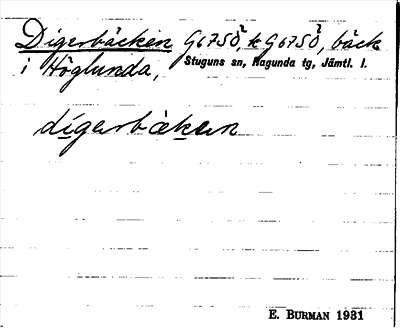 Digerbäcken G675Ö², k G675Ö², bäck
i Höglunda, Stuguns sn, Ragunda tg, Jämtl. l.
digerbäken
E. BURMAN 1931